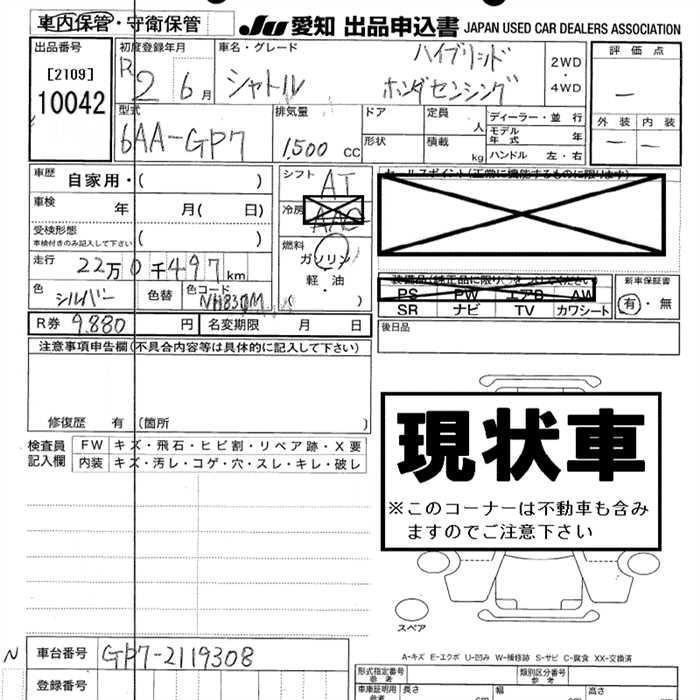 車内保管・守衛保管
JU 愛知 出品申込書 JAPAN USED CAR DEALERS ASSOCIATION
出品番号
[2109]
10042
初度登録年月
R2 6月
車名・グレード
シャトル ハイブリッド
ホンダセンシング
2WD
・
4WD
評価点
ー
外装 内装
ー ー
型式
6AA-GP7
排気量
1,500 CC
ドア
形状
定員 人
積載 kg
ディーラー・並行
モデル年式 年
ハンドル 左・右
車歴 自家用・( )
車検 年 月( 日)
受検形態
車検付きのみ記入して下さい ( )
走行 22万0千497km
色 シルバー 色替 色コード NH830M
シフト AT
冷房 AAC
燃料
ガソリン
軽・油
( )
セールスポイント(正常に機能するものに限ります)
装備品(純正品に限り○をつけてください)
PS PW エアB AW
SR ナビ TV カワシート
新車保証書
有・無
R券 9,880 円 名変期限 月 日
後日品
注意事項申告欄(不具合内容等は具体的に記入して下さい)
修復歴 有 (箇所 )
検査員記入欄
FW キズ・飛石・ヒビ割・リペア跡・X要
内装 キズ・汚レ・コゲ・穴・スレ・キレ・破レ
現状車
※このコーナーは不動車も含み
ますのでご注意下さい
スペア
A-キズ E-エクボ U-凹み W-補修跡 S-サビ C-腐食 XX-交換済
N
車台番号 GP7-2119308
登録番号
形式指定番号
参考
類別区分番号
参考
車庫証明用
参考
長さ cm 幅 cm 高さ cm